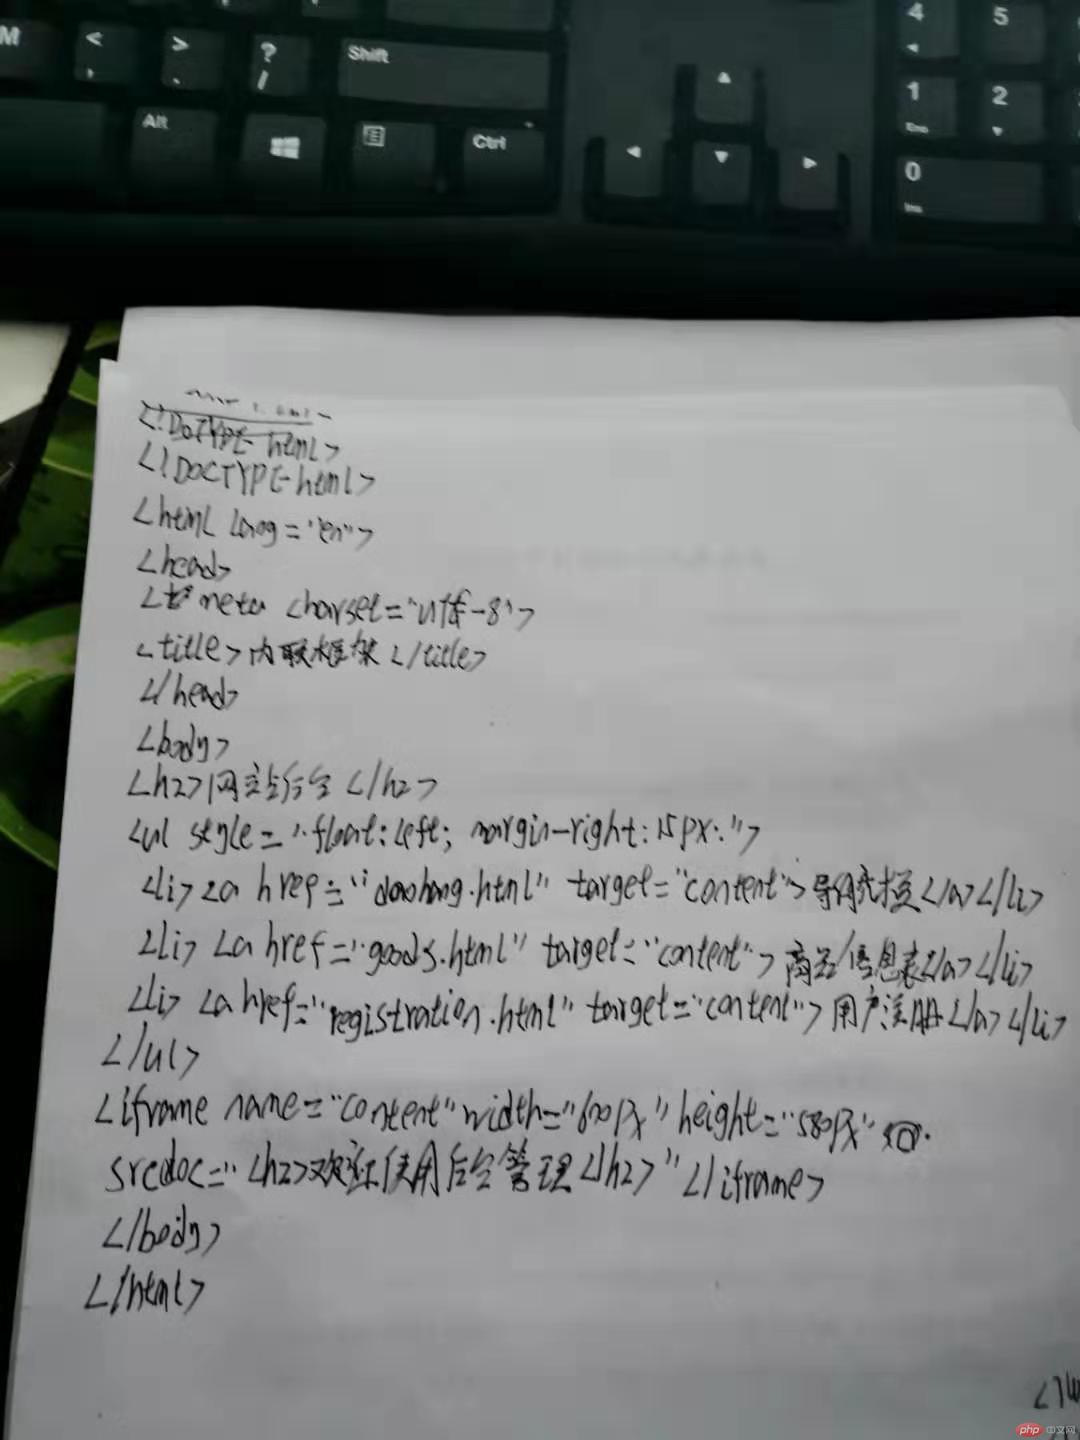 M < , > . ? / Shift
Alt Ctrl
4 5
1 2
End
0
Ins
<!DOCTYPE html>
<!DOCTYPE html>
<html lang="en">
<head>
< meta charset="utf-8">
<title>内联框架</title>
</head>
<body>
<h2>网站后台</h2>
<ul style="float:left; margin-right:15px:">
<li><a href="daohang.html" target="content">导航</a></li>
<li><a href="goods.html" target="content">商品信息表</a></li>
<li><a href="registration.html" target="content">用户注册</a></li>
</ul>
<iframe name="content" width="600px" height="580px"
srcdoc="<h2>欢迎使用后台管理</h2>"</iframe>
</body>
</html>
php 中文网